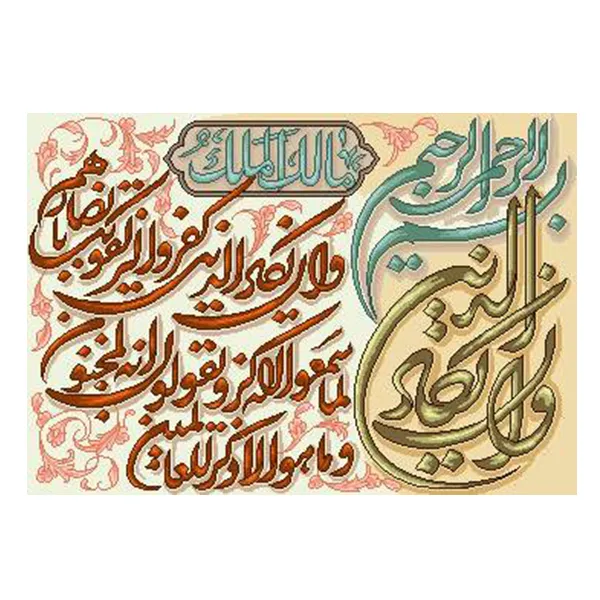 بسم الله الرحمن الرحيم
وان يكاد الذين
مالك الملك
وان يكاد الذين كفروا ليزلقونك بابصارهم
لما سمعوا الذكر و يقولون انه لمجنون
و ما هو الا ذكر للعالمين